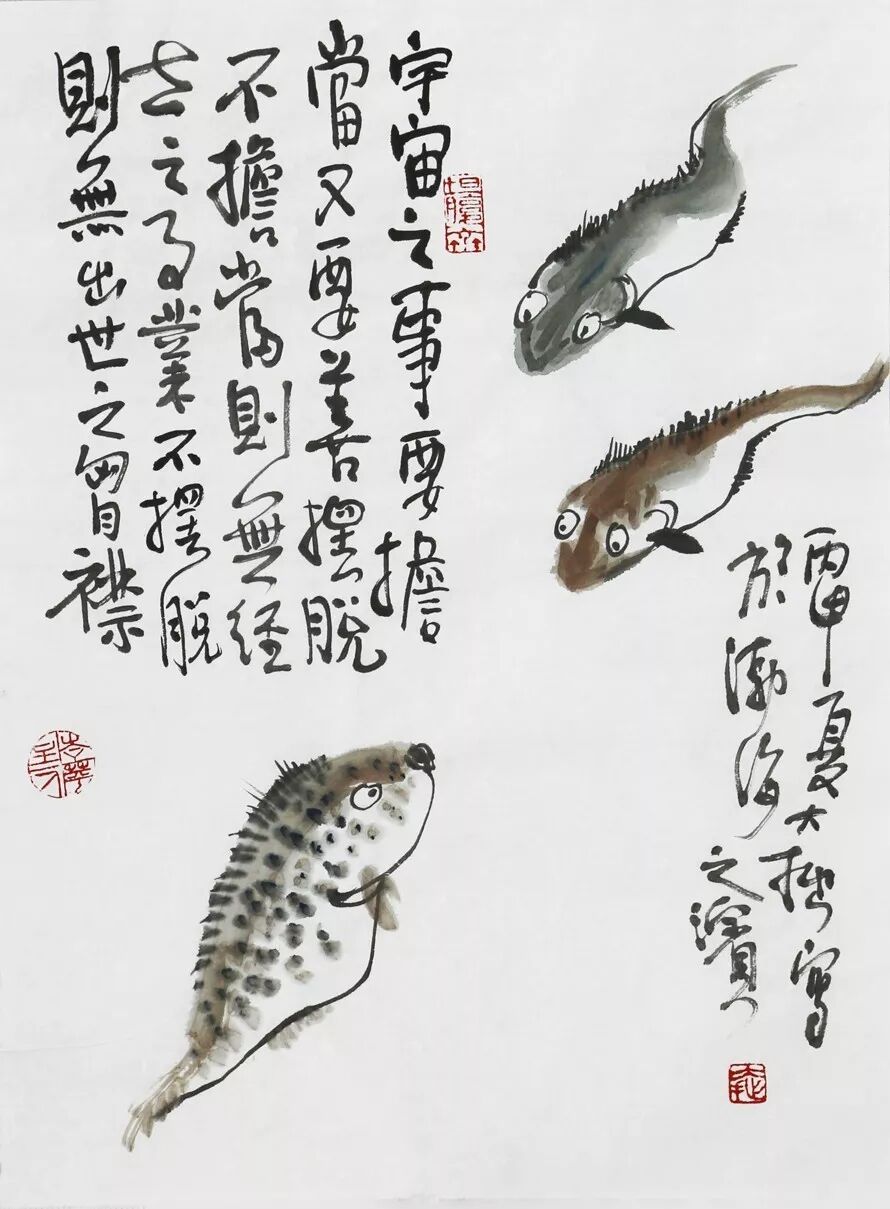 宇宙之事要擔
當又要善擺脫
不擔當則無經
世之事業不擺脫
則無出世之胷襟
丙申夏大拙寫
於渤海之濱